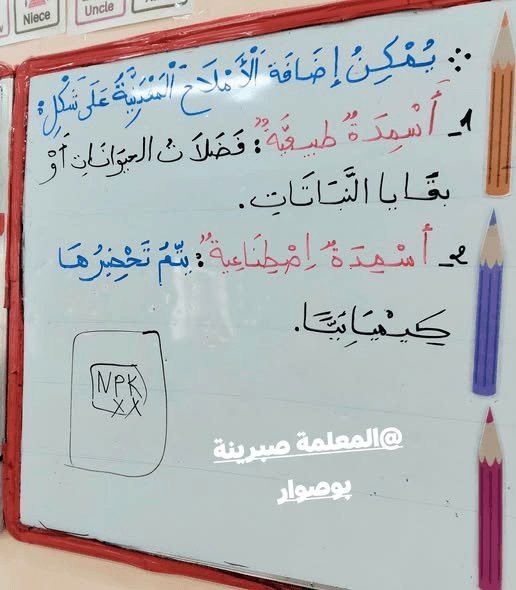 Niece
Uncle
Aunt
يُمْكِنُ إِضَافَةُ الْأَمْلَاحِ الْمَعْدَنِيَّةُ عَلَى شَكْلِ:
1_ أَسْمِدَةٌ طبيعيَّةٌ: فَضَلَاتُ الحَيَوَانَاتِ أَوْ
بقَايا النَّبَاتَاتِ.
2_ أَسْمِدَةٌ اِصْطِنَاعِيةٌ: يتِمُّ تَحْضِيرُهَا
كِيمْيَائِيًّا.
NPK
XX
@المعلمة صبرينة
بوصوار